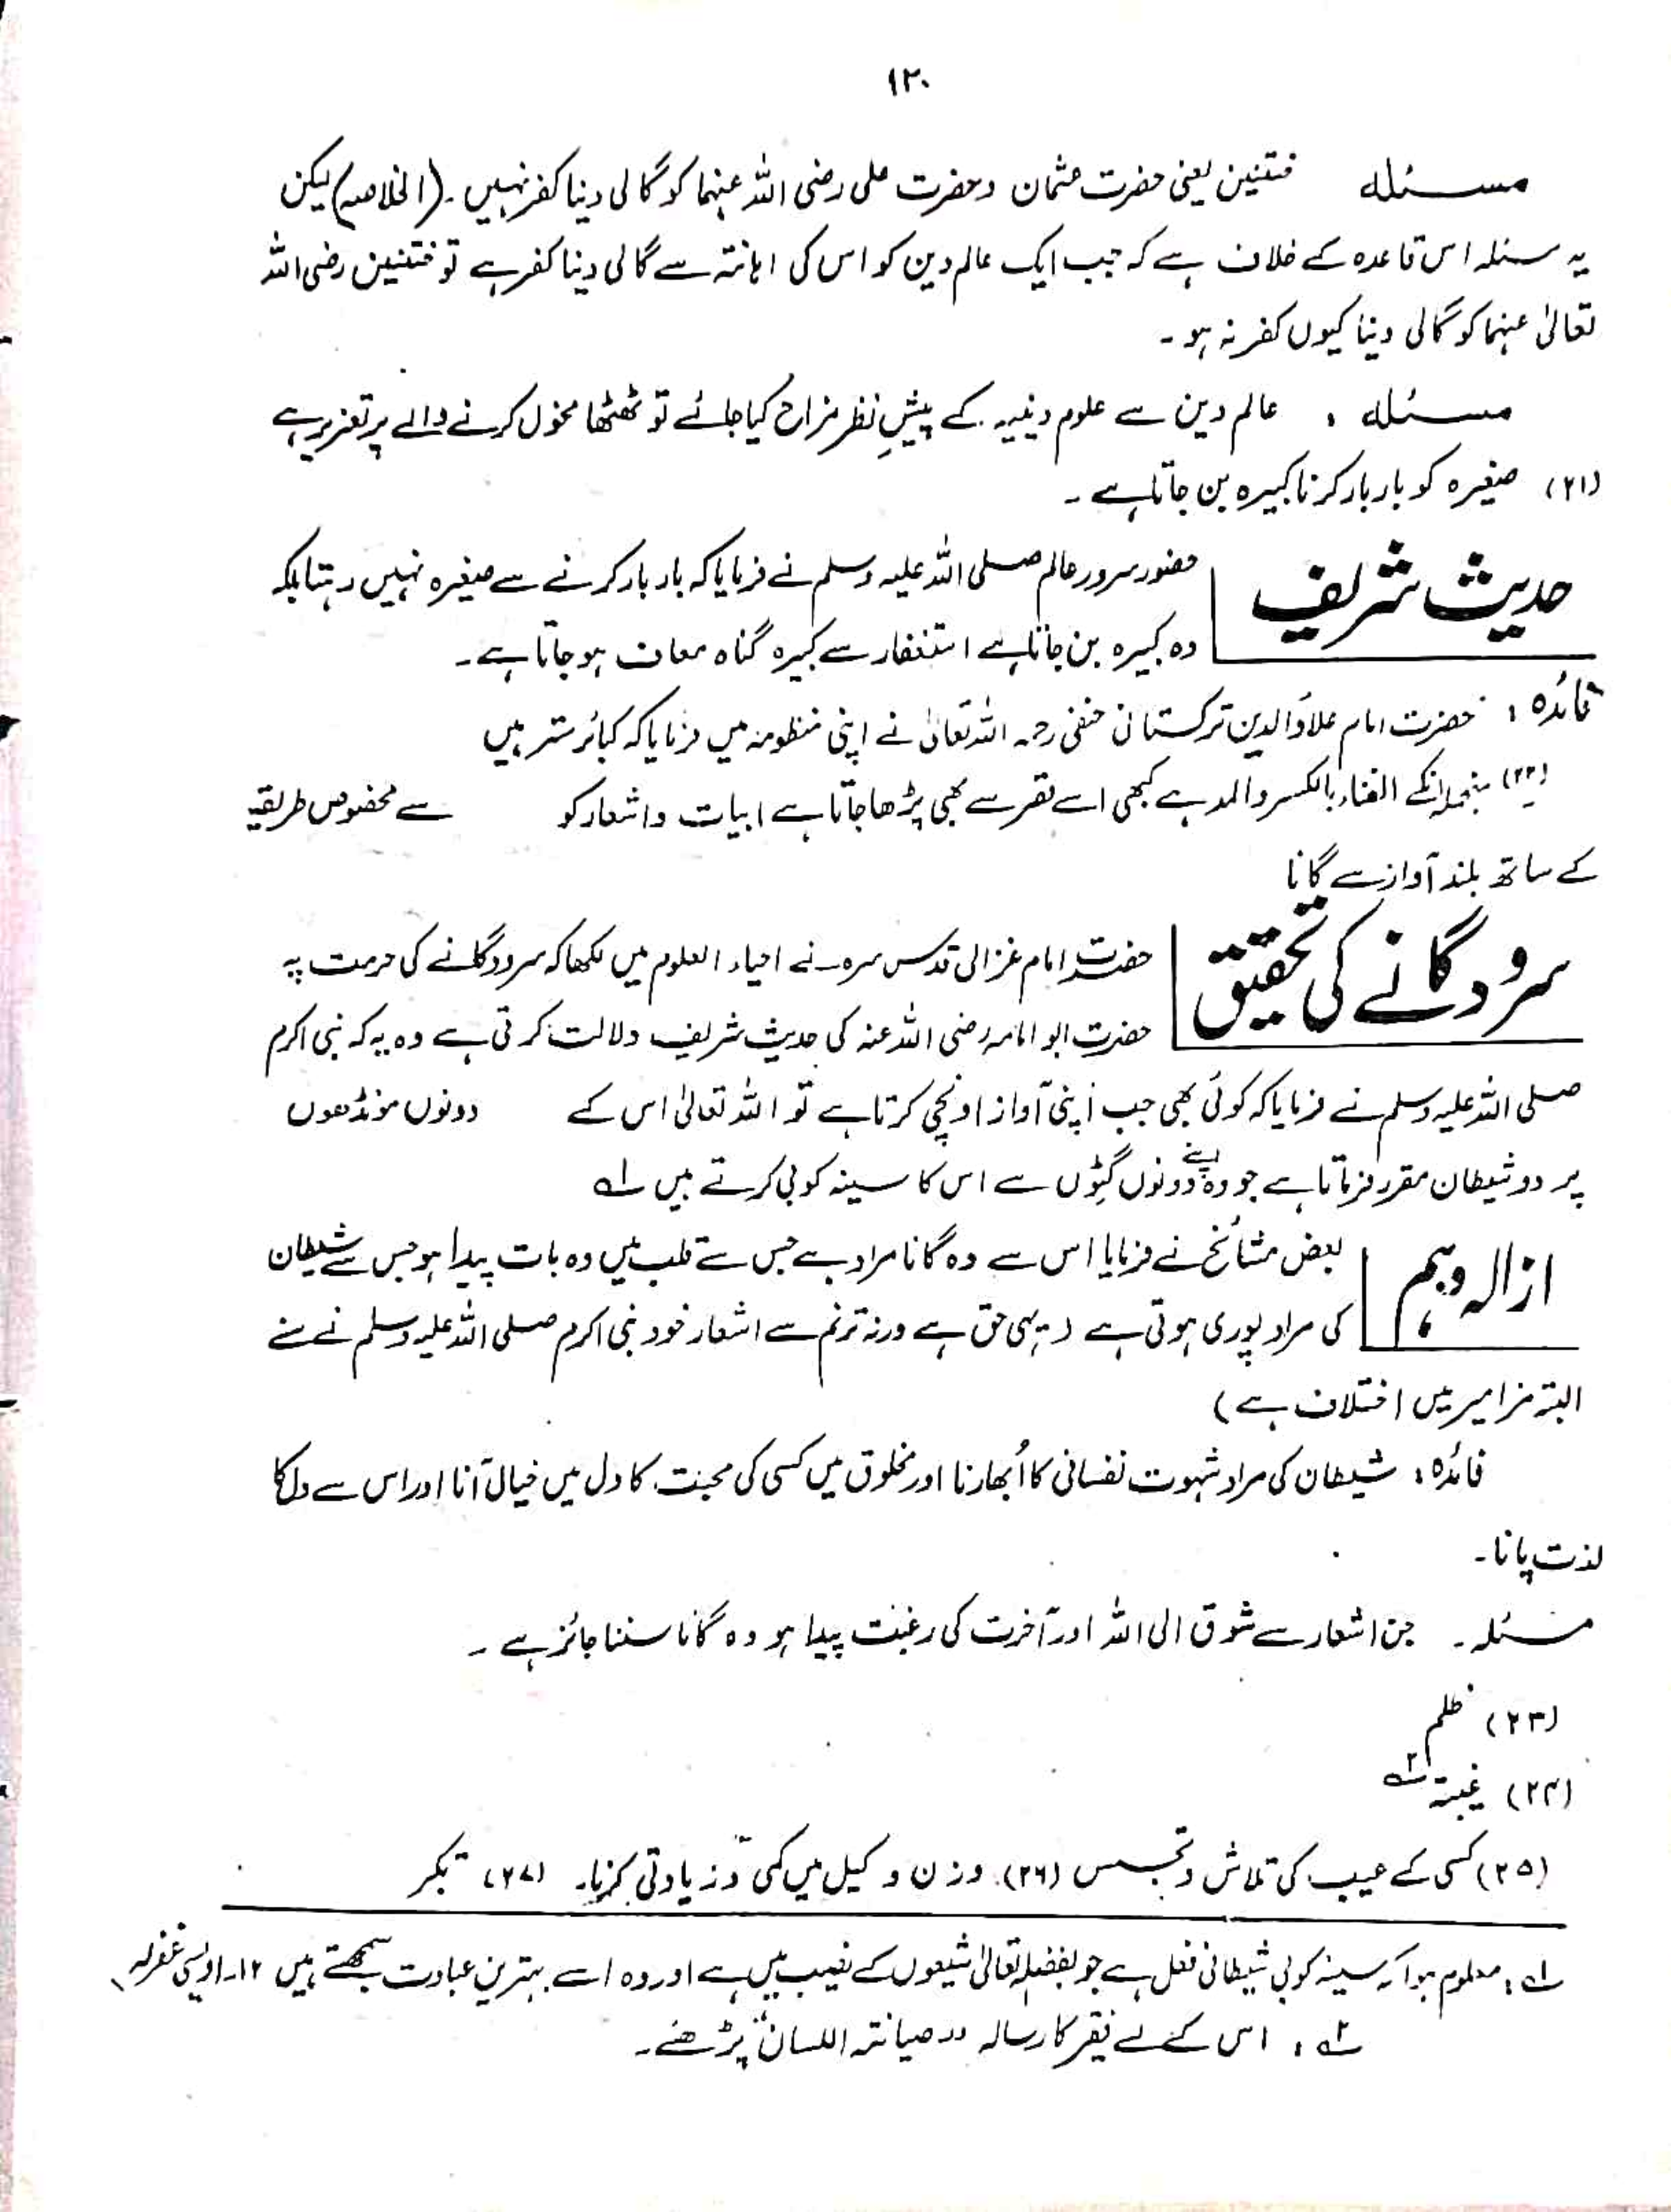 ۱۲۰
مسئلہ ختنین یعنی حضرت عثمان و حضرت علی رضی اللہ عنہما کو گالی دینا کفر نہیں ۔ (الخلاصہ) لیکن
یہ مسئلہ اس قاعدہ کے خلاف ہے کہ جب ایک عالم دین کو اس کی اہانتہ سے گالی دینا کفر ہے تو ختنین رضی اللہ
تعالیٰ عنہما کو گالی دینا کیوں کفر نہ ہو ۔
مسئلہ ، عالم دین سے علوم دینیہ کے پیشِ نظر مزاح کیا جائے تو ٹھٹھا مخول کرنے والے پر تعزیر ہے
(۲۱) صغیرہ کو بار بار کرنا کبیرہ بن جاتا ہے ۔
حدیث شریف
حضور سرور عالم صلی اللہ علیہ وسلم نے فرمایا کہ بار بار کرنے سے صغیرہ نہیں رہتا بلکہ
وہ کبیرہ بن جاتا ہے استغفار سے کبیرہ گناہ معاف ہو جاتا ہے ۔
فائدہ ، حضرت امام علاؤ الدین ترکستانی حنفی رحمہ اللہ تعالیٰ نے اپنی منظومہ میں فرمایا کہ کبائر ستر ہیں
(۲۲) منجملہ انکے الغناء بالکسر والمد ہے کبھی اسے قصر سے بھی پڑھا جاتا ہے ابیات و اشعار کو سے مخصوص طریقہ
کے ساتھ بلند آواز سے گانا
سرود گانے کی تحقیق
حضرت امام غزالی قدس سرہ نے احیاء العلوم میں لکھا کہ سرود گانے کی حرمت پہ
حضرت ابو امامہ رضی اللہ عنہ کی حدیث شریف دلالت کرتی ہے وہ یہ کہ نبی اکرم
صلی اللہ علیہ وسلم نے فرمایا کہ کوئی بھی جب اپنی آواز اونچی کرتا ہے تو اللہ تعالیٰ اس کے دونوں مونڈھوں
پر دو شیطان مقرر فرماتا ہے جو وہ اپنے دونوں گِٹوں سے اس کا سینہ کوبی کرتے ہیں لہ
ازالہ وہم ،
بعض مشائخ نے فرمایا اس سے وہ گانا مراد ہے جس سے قلب میں وہ بات پیدا ہو جس سے شیطان
کی مراد پوری ہوتی ہے (یہی حق ہے ورنہ ترنم سے اشعار خود نبی اکرم صلی اللہ علیہ وسلم نے سنے
البتہ مزامیر میں اختلاف ہے)
فائدہ ، شیطان کی مراد شہوت نفسانی کا اُبھارنا اور مخلوق میں کسی کی محبت کا دل میں خیال آنا اور اس سے دل کا
لذت پانا ۔
مسئلہ ۔ جن اشعار سے شوق الی اللہ اور آخرت کی رغبت پیدا ہو وہ گانا سننا جائز ہے ۔
(۲۳) ظلم
(۲۴) غیبتہ ۲ہ
(۲۵) کسی کے عیب کی تلاش و تجسس (۲۶) وزن و کیل میں کمی و زیادتی کرنا ۔ (۲۷) تکبر
لہ ، معلوم ہوا کہ سینہ کوبی شیطانی فعل ہے جو بفضلہ تعالیٰ شیعوں کے نصیب میں ہے اور وہ اسے بہترین عبادت سمجھتے ہیں ۱۲۔ اویسی غفرلہ
۲ہ ، اس کے لیے فقیر کا رسالہ "صیانتہ اللسان" پڑھئے ۔